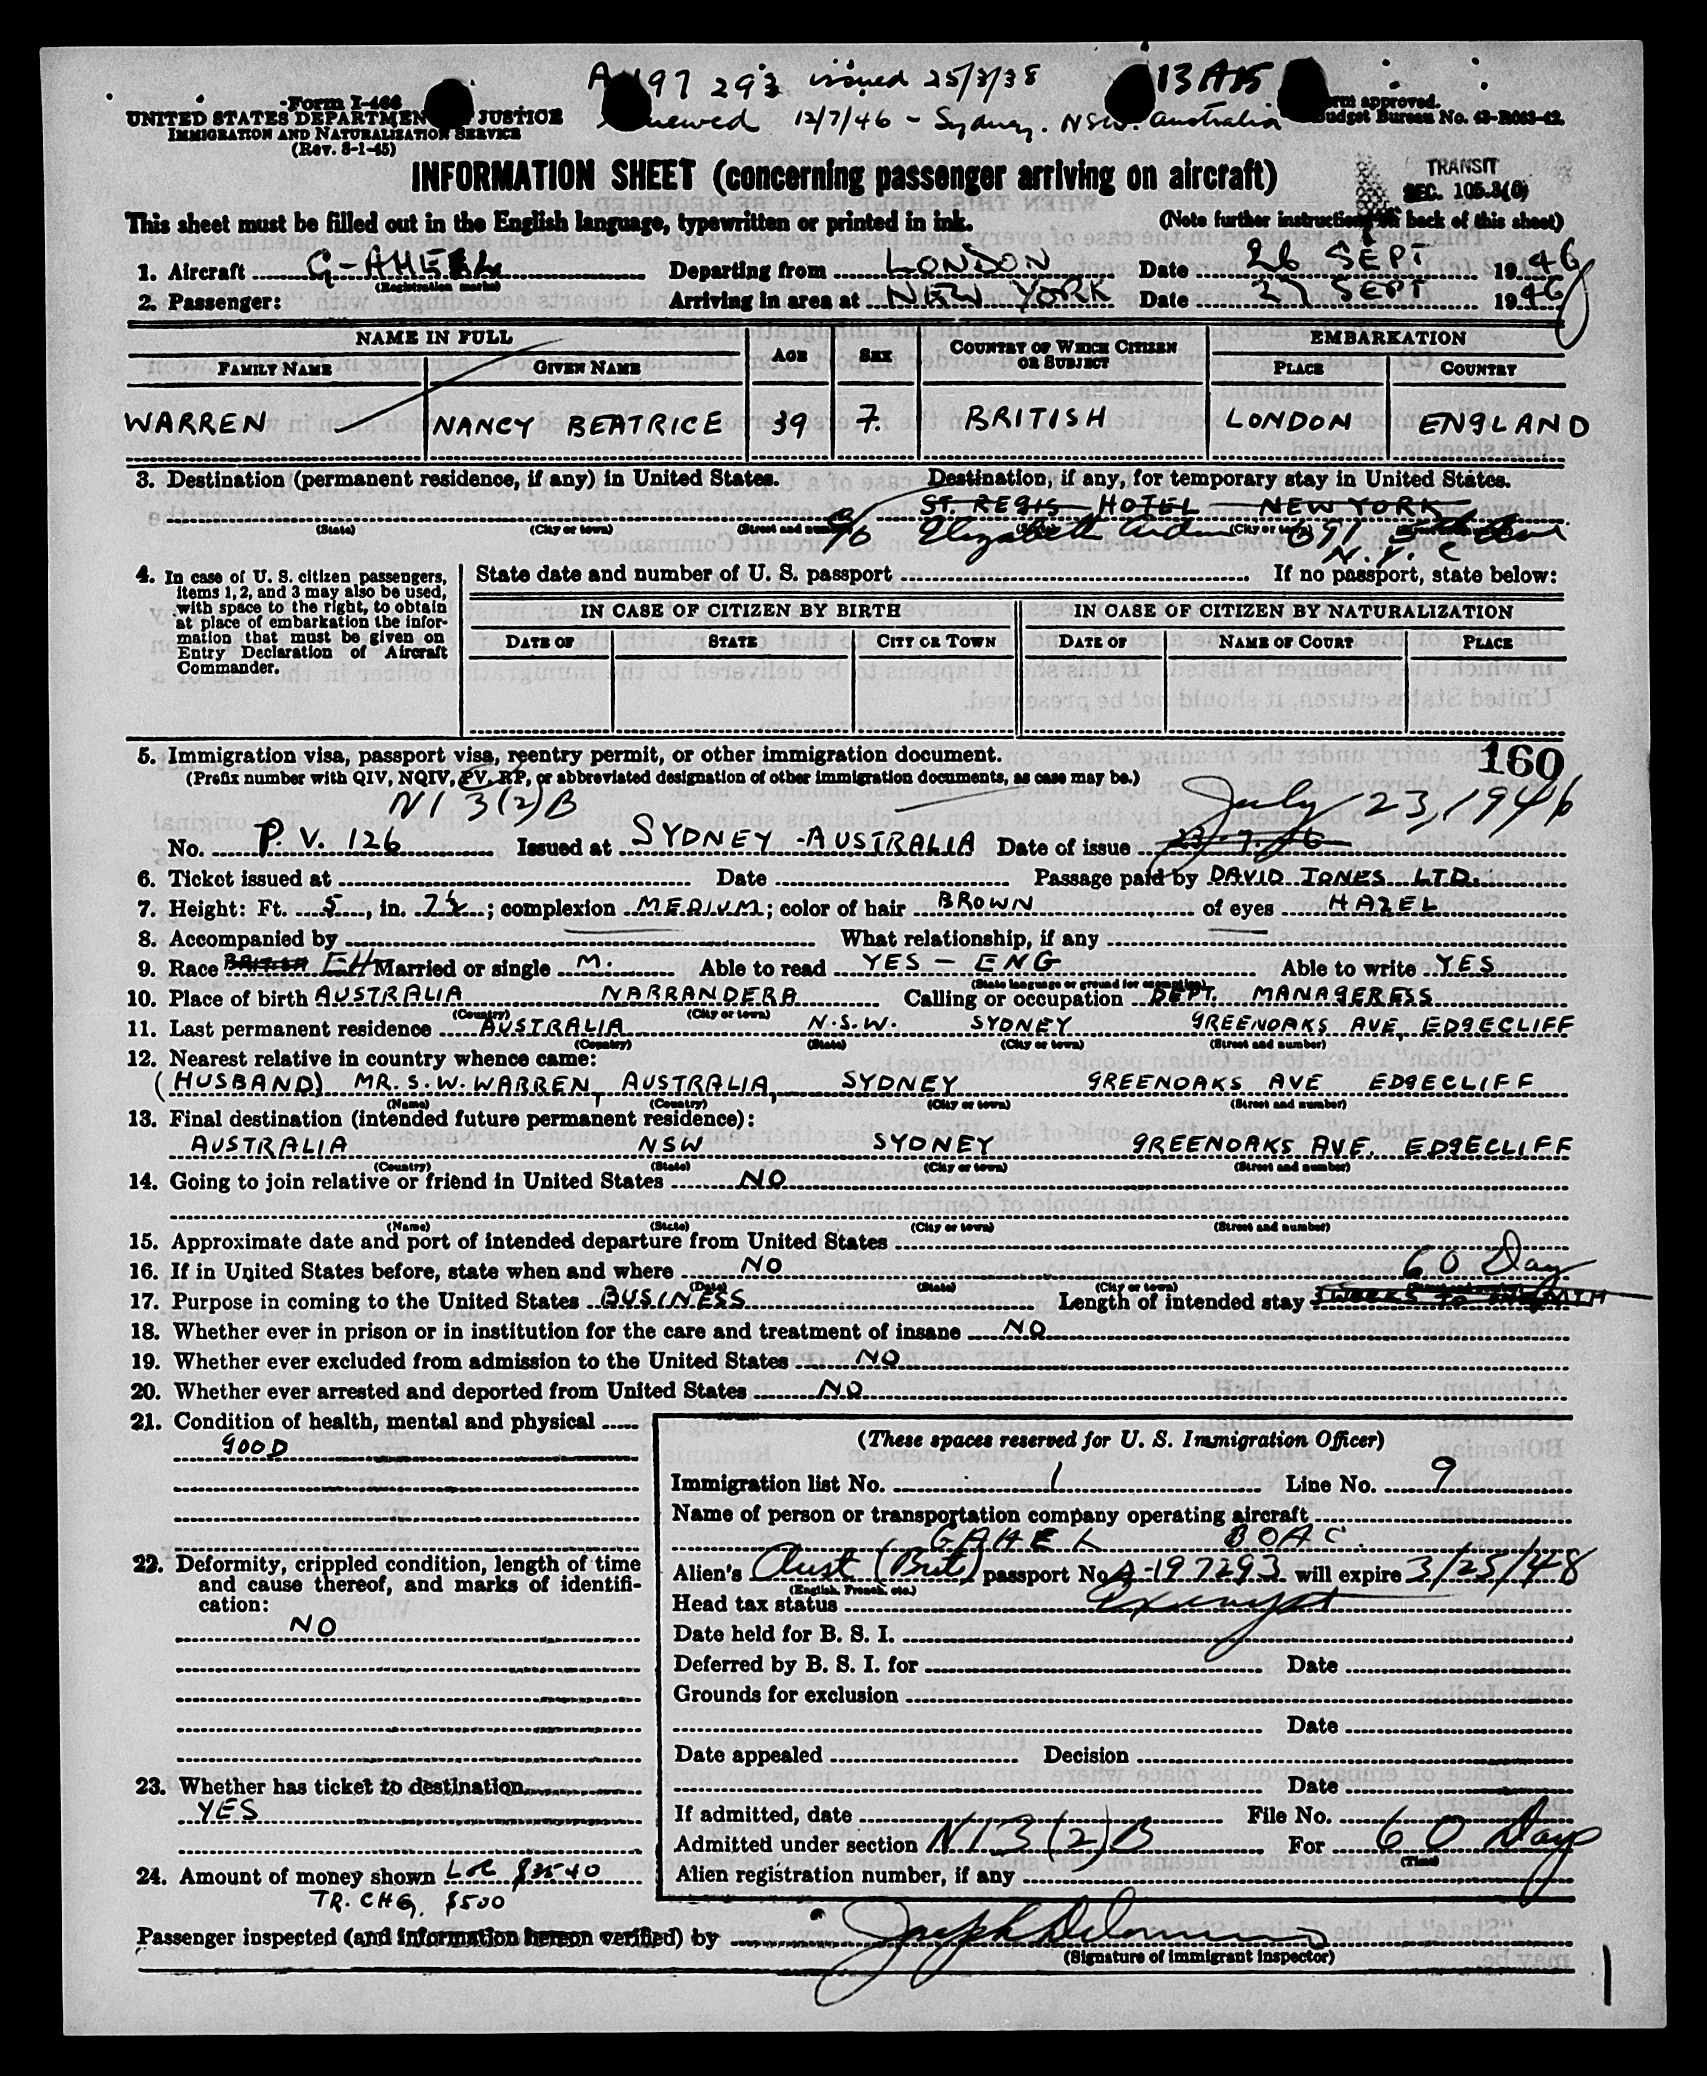 A 197 293 issued 25/3/38 13 A15
Form I-466
UNITED STATES DEPARTMENT JUSTICE
IMMIGRATION AND NATURALIZATION SERVICE
(Rev. 8-1-45)
renewed 12/7/46 - Sydney. NSW. Australia
Form approved.
Budget Bureau No. 43-R063-42.
INFORMATION SHEET (concerning passenger arriving on aircraft)
TRANSIT
SEC. 105.3(0)
This sheet must be filled out in the English language, typewritten or printed in ink. (Note further instructions on back of this sheet)
1. Aircraft G-AHEL Departing from LONDON Date 26 SEPT 1946
(Registration marks)
2. Passenger: Arriving in area at NEW YORK Date 27 SEPT 1946
NAME IN FULL AGE SEX COUNTRY OF WHICH CITIZEN OR SUBJECT EMBARKATION
FAMILY NAME GIVEN NAME PLACE COUNTRY
WARREN NANCY BEATRICE 39 F. BRITISH LONDON ENGLAND
3. Destination (permanent residence, if any) in United States. Destination, if any, for temporary stay in United States.
ST. REGIS HOTEL NEW YORK
(State) (City or town) (Street and number) (State) (City or town)
c/o Elizabeth Arden 691 5th Ave
N.Y.C
4. In case of U. S. citizen passengers, items 1, 2, and 3 may also be used, with space to the right, to obtain at place of embarkation the information that must be given on Entry Declaration of Aircraft Commander.
State date and number of U. S. passport If no passport, state below:
IN CASE OF CITIZEN BY BIRTH IN CASE OF CITIZEN BY NATURALIZATION
DATE OF STATE CITY OR TOWN DATE OF NAME OF COURT PLACE
5. Immigration visa, passport visa, reentry permit, or other immigration document. 160
(Prefix number with QIV, NQIV, PV, RP, or abbreviated designation of other immigration documents, as case may be.)
N13(2)B July 23, 1946
No. P.V. 126 Issued at SYDNEY - AUSTRALIA Date of issue 23.7.46
6. Ticket issued at Date Passage paid by DAVID JONES LTD.
7. Height: Ft. 5, in. 7½; complexion MEDIUM; color of hair BROWN of eyes HAZEL
8. Accompanied by What relationship, if any
9. Race BRITISH Married or single M. Able to read YES - ENG Able to write YES
(State language or ground for exemption)
10. Place of birth AUSTRALIA NARRANDERA Calling or occupation DEPT. MANAGERESS
(Country) (City or town)
11. Last permanent residence AUSTRALIA N.S.W. SYDNEY GREENOAKS AVE, EDGECLIFF
(Country) (State) (City or town) (Street and number)
12. Nearest relative in country whence came:
(HUSBAND) MR. S. W. WARREN, AUSTRALIA, SYDNEY GREENOAKS AVE EDGECLIFF
(Name) (Country) (City or town) (Street and number)
13. Final destination (intended future permanent residence):
AUSTRALIA NSW SYDNEY GREENOAKS AVE. EDGECLIFF
(Country) (State) (City or town) (Street and number)
14. Going to join relative or friend in United States NO
(Name) (State) (City or town) (Street and number)
15. Approximate date and port of intended departure from United States
16. If in United States before, state when and where NO 60 Day
(Date) (State) (City or town) (Street and number)
17. Purpose in coming to the United States BUSINESS Length of intended stay
18. Whether ever in prison or in institution for the care and treatment of insane NO
19. Whether ever excluded from admission to the United States NO
20. Whether ever arrested and deported from United States NO
21. Condition of health, mental and physical
GOOD
22. Deformity, crippled condition, length of time and cause thereof, and marks of identification:
NO
23. Whether has ticket to destination
YES
24. Amount of money shown L of C
TR. CHQ. $500
(These spaces reserved for U. S. Immigration Officer)
Immigration list No. 1 Line No. 9
Name of person or transportation company operating aircraft
GAHEL BOAC.
Alien's Aust (Brit) passport No. A-197293 will expire 3/25/48
(English, French, etc.)
Head tax status Exempt
Date held for B. S. I.
Deferred by B. S. I. for Date
Grounds for exclusion
Date
Date appealed Decision
Date
If admitted, date File No.
Admitted under section N13(2)B For 60 Days
(Time)
Alien registration number, if any
Passenger inspected (and information hereon verified) by Joseph
(Signature of immigrant inspector)